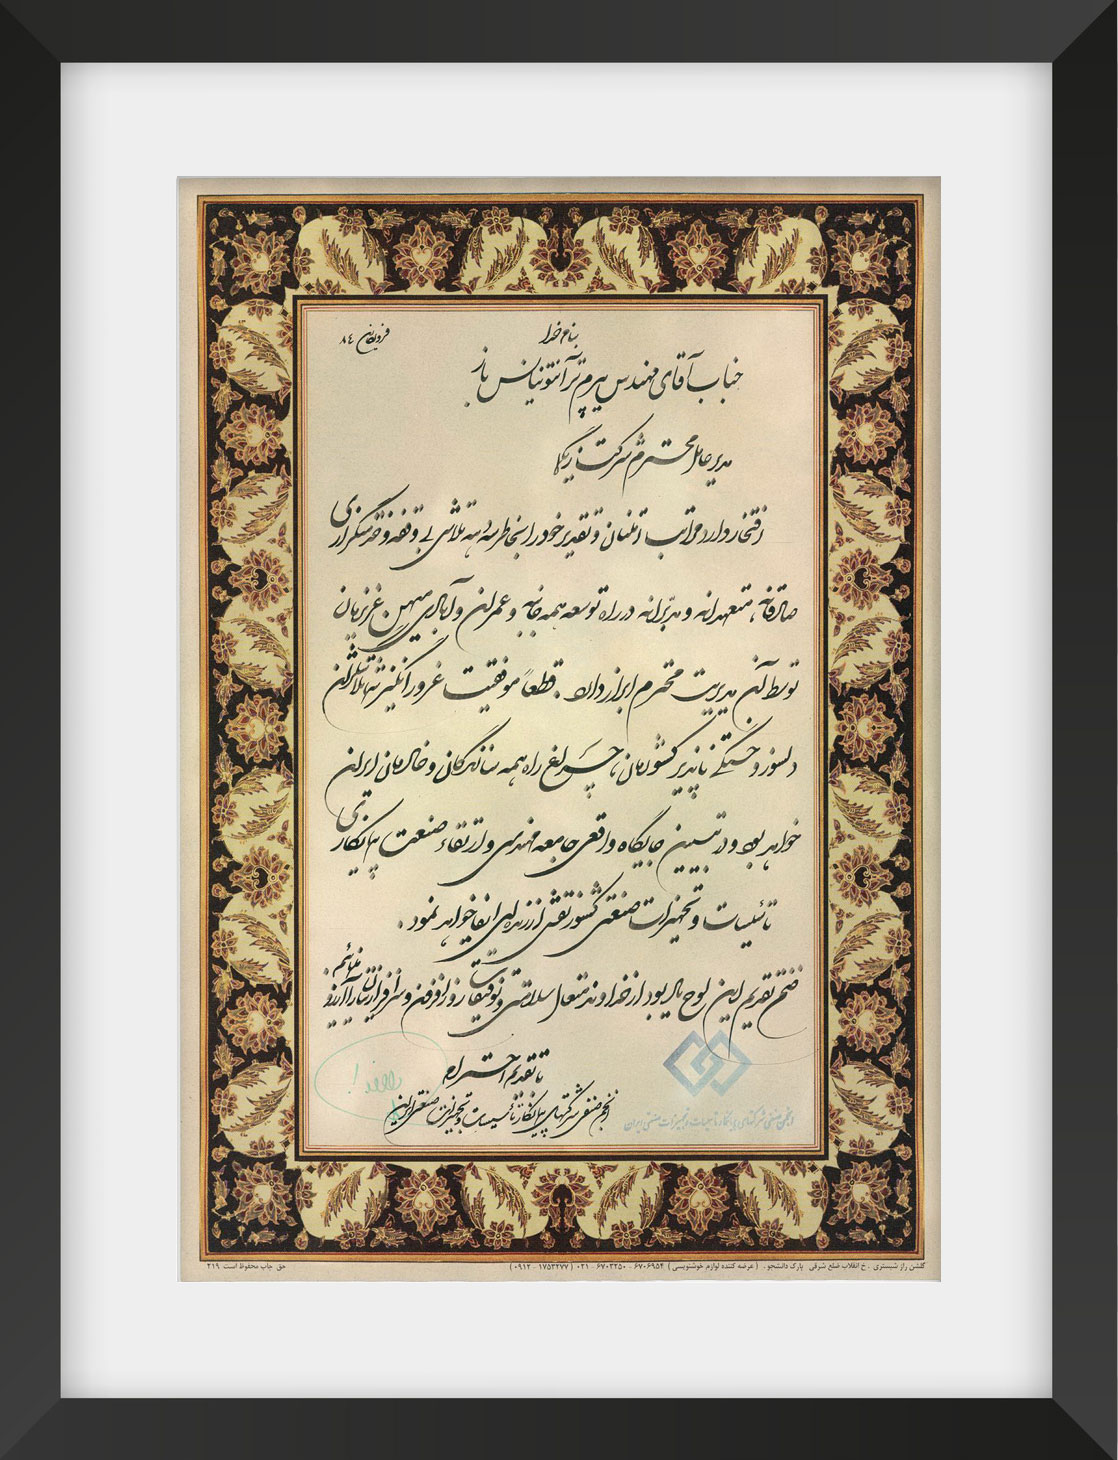 بنام خدا
فروردین ۸۴
جناب آقای مهندس
مدیر عامل محترم شرکت
افتخار دارد مراتب امتنان و تقدیر خود را بخاطر تلاش بی وقفه و خدمتگزاری
صادقانه، متعهدانه و مدبرانه در راه توسعه همه جانبه و عمران و آبادی میهن عزیزمان
توسط آن مدیریت محترم ابراز دارد. قطعاً موفقیت غرور انگیز تلاشگران
دلسوز و خستگی ناپذیر کشورمان، چراغ راه همه سازندگان و خادمان ایران
خواهد بود و در تبیین جایگاه واقعی جامعه مهندسی و ارتقاء صنعت پیمانکاری
تاسیسات و تجهیزات صنعتی کشور نقش ارزنده ای ایفا خواهد نمود.
ضمن تقدیم این لوح یادبود از خداوند متعال سلامتی و توفیقات روز افزون و سرافرازیتان را آرزو مینمائیم.
با تقدیم احترام
انجمن صنفی شرکتهای پیمانکار تاسیسات و تجهیزات صنعتی ایران
انجمن صنفی شرکتهای پیمانکار تاسیسات و تجهیزات صنعتی ایران
گلشن راز شبستری . خ انقلاب ضلع شرقی پارک دانشجو . ( عرضه کننده لوازم خوشنویسی ) ۶۷۰۶۹۵۴ - ۶۷۰۳۲۵۰ - ۰۲۱ ( ۱۷۵۳۲۷۷ - ۰۹۱۲ )
حق چاپ محفوظ است ۲۱۹